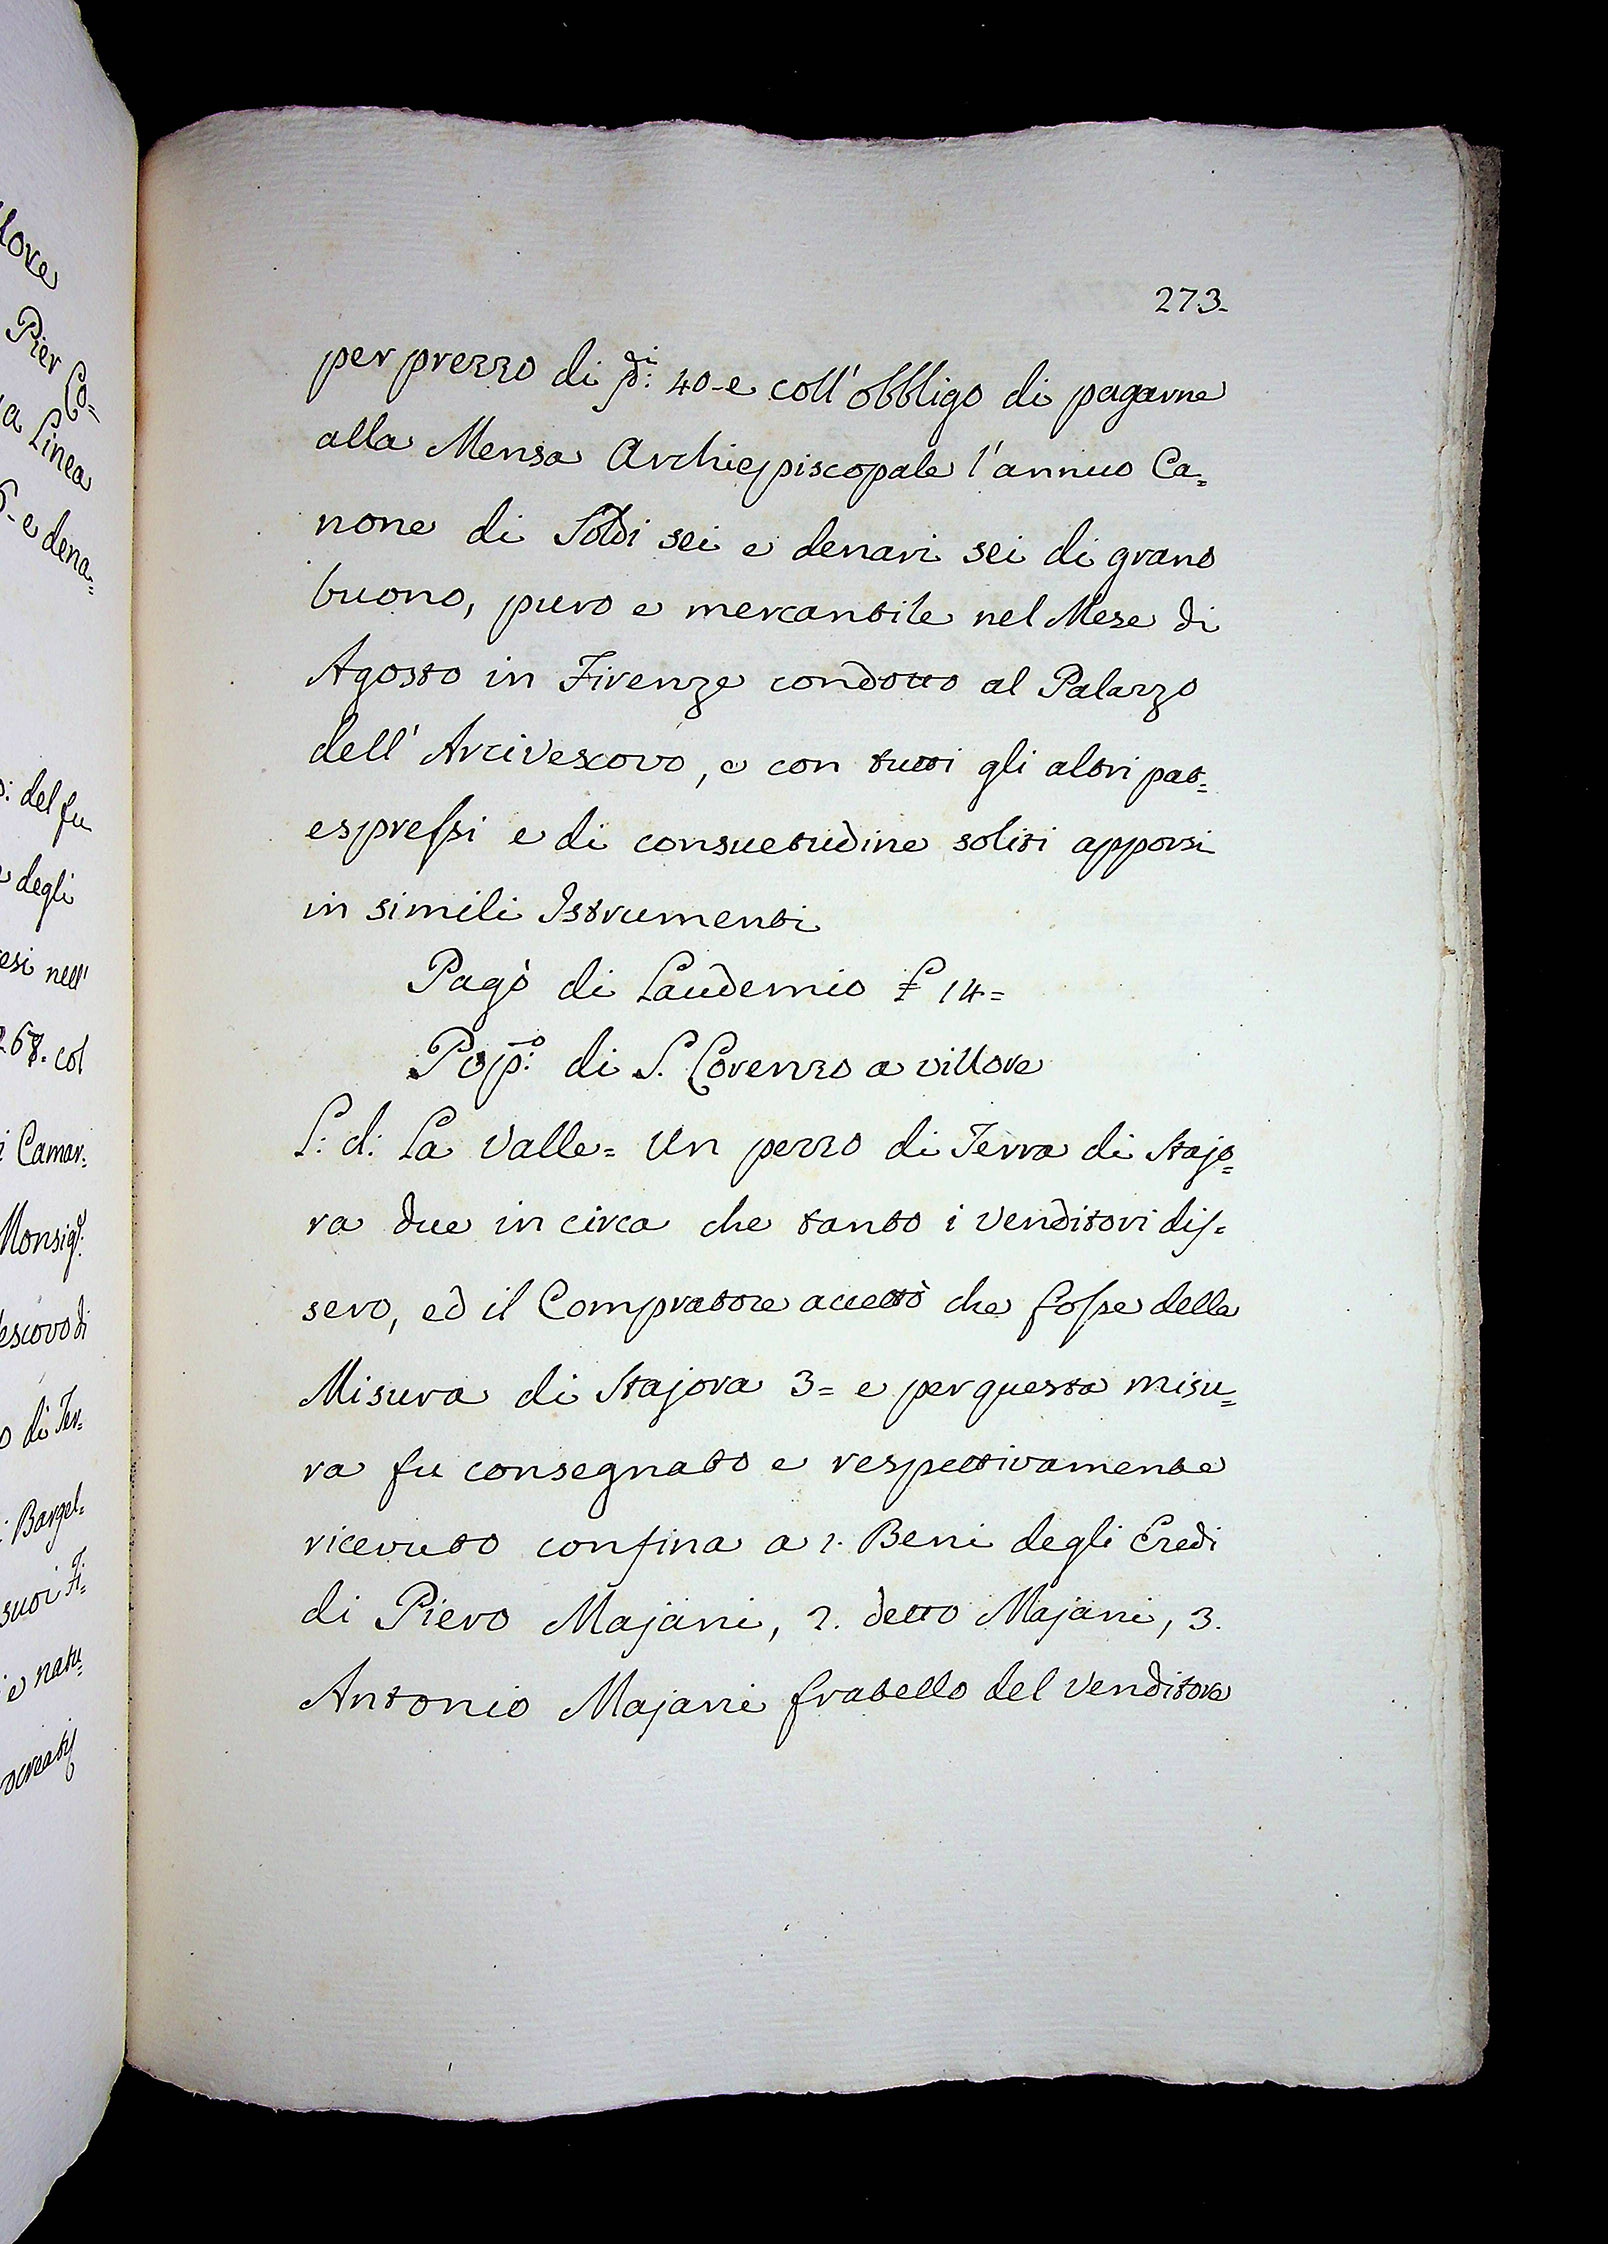 lore
Pier Co=
a Linea
6- e dena=
: del fu
e degli
esi nell'
268. col
i Camar:
Monsig.r
escovo di
o di Ter=
i Bargel=
suoi Fi=
i e natu=
ocreati
273.
per prezzo di p.di: 40-e coll'obbligo di pagarne
alla Mensa Archiepiscopale l'annuo Ca=
none di Soldi sei e denari sei di grano
buono, puro e mercantile nel Mese di
Agosto in Firenze condotto al Palazzo
dell'Arcivescovo, e con tutti gli altri pat=
espressi e di consuetudine soliti apporsi
in simili Istrumenti
Pagò di Laudemio £ 14=
Pop.o: di S. Lorenzo a villore
L: d: La Valle= Un pezzo di Terra di Stajo=
ra due in circa che tanto i Venditori dis=
sero, ed il Compratore accettò che fosse della
Misura di Stajora 3= e per questa misu=
ra fu consegnato e respettivamente
ricevuto confina a 1. Beni degli Eredi
di Piero Majani, 2. detto Majani, 3.
Antonio Majani fratello del Venditore